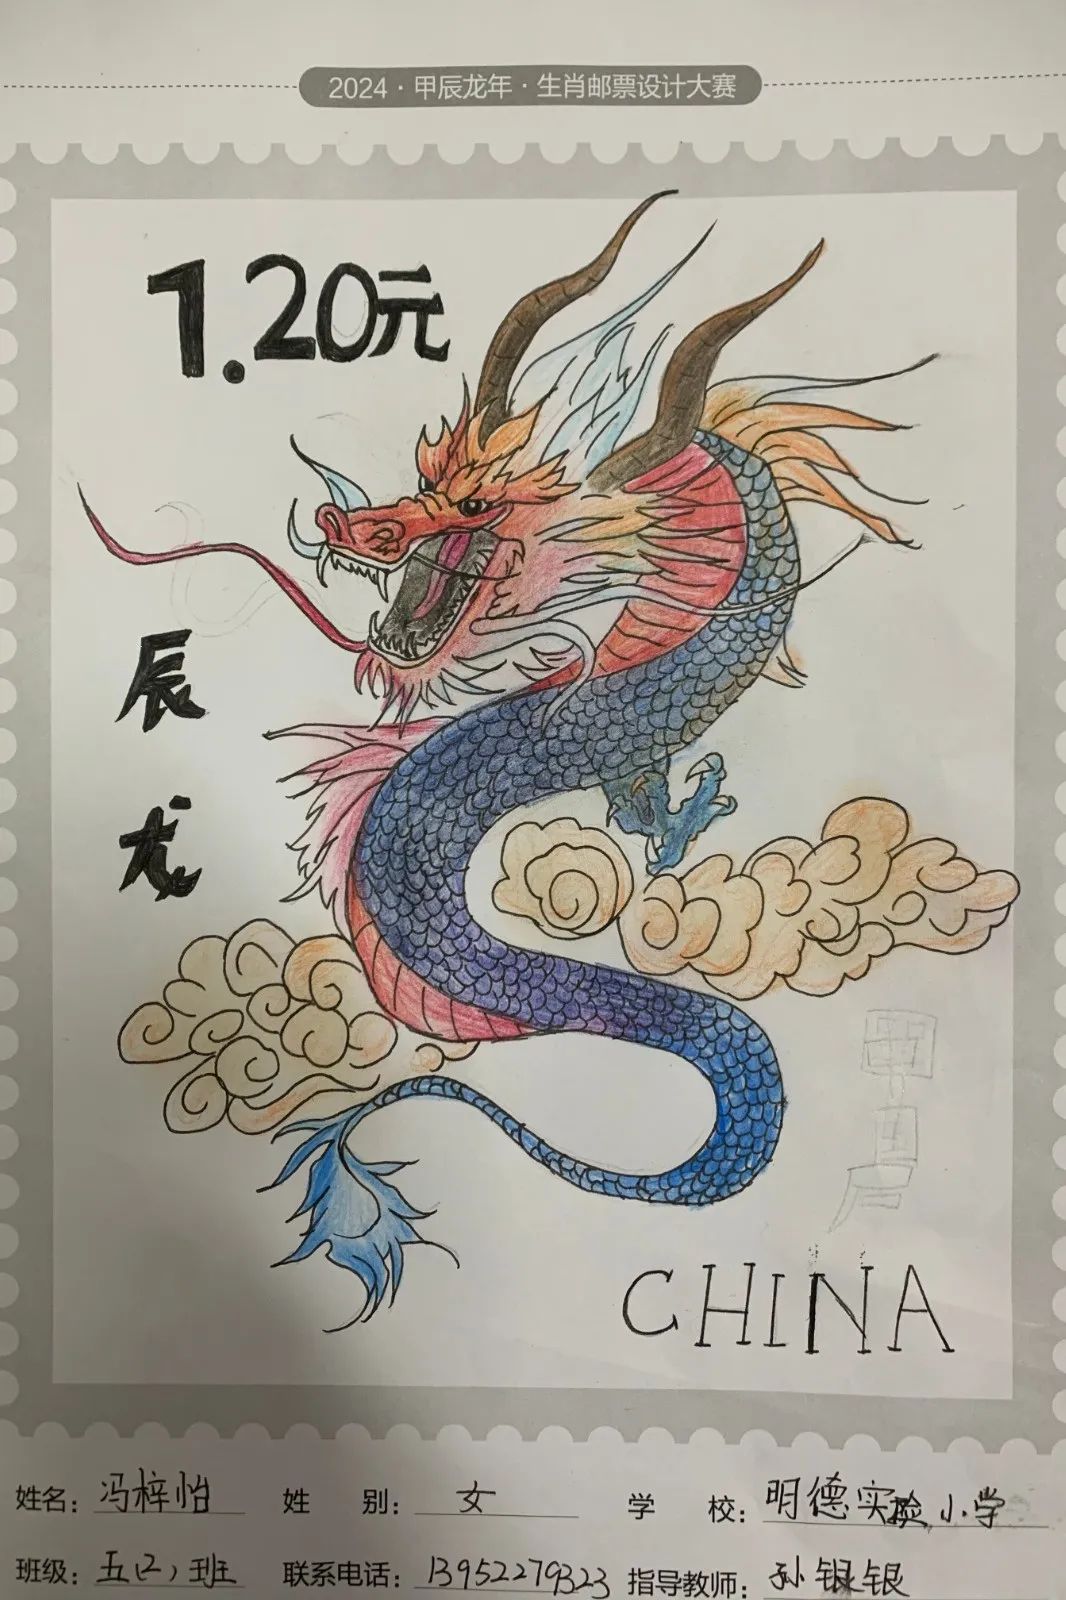 2024·甲辰龙年·生肖邮票设计大赛
1.20元
辰
龙
CHINA
姓名：冯梓怡 姓 别：女 学 校：明德实验小学
班级：五(2)班 联系电话：13952279323 指导教师：孙银银